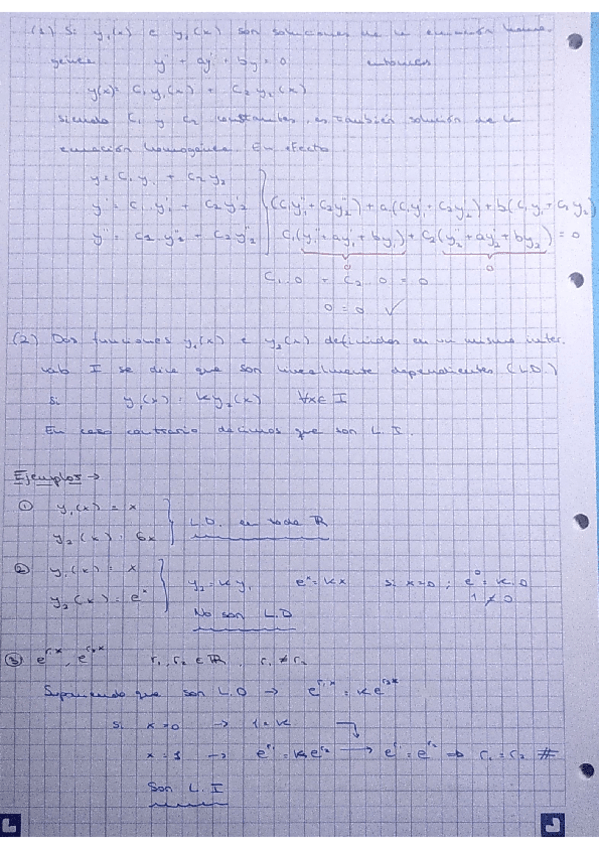 (1) Si y₁(x) e y₂(x) son soluciones de la ecuación homo-
génea y'' + ay' + by = 0 entonces
y(x) = C₁y₁(x) + C₂y₂(x)
siendo C₁ y C₂ constantes, es también solución de la
ecuación homogénea. En efecto
y = C₁y₁ + C₂y₂
y' = C₁·y₁' + C₂y₂' (C₁y₁''+C₂y₂'')+a(C₁y₁'+C₂y₂')+b(C₁y₁+C₂y₂)
y'' = C₁·y₁'' + C₂y₂'' C₁(y₁''+ay₁'+by₁)+C₂(y₂''+ay₂'+by₂)=0
0 0
C₁·0 + C₂·0 = 0
0 = 0 ✓
(2) Dos funciones y₁(x) e y₂(x) definidas en un mismo inter-
valo I se dice que son linealmente dependientes (LD)
si y₁(x) = Ky₂(x) ∀x∈I
En caso contrario decimos que son L.I.
Ejemplos →
① y₁(x) = x
y₂(x) = 6x L.D. en toda ℝ
② y₁(x) = x
y₂(x) = eˣ y₂ = Ky₁ eˣ = Kx si x=0 ; e⁰ = K·0
1 ≠ 0
No son L.D
③ e^{r₁x}, e^{r₂x} r₁, r₂ ∈ ℝ, r₁ ≠ r₂
Suponiendo que son L.D → e^{r₁x} = Ke^{r₂x}
si x=0 → 1 = K
x = 1 → e^{r₁} = K·e^{r₂} → e^{r₁} = e^{r₂} ⇒ r₁ = r₂ #
Son L.I